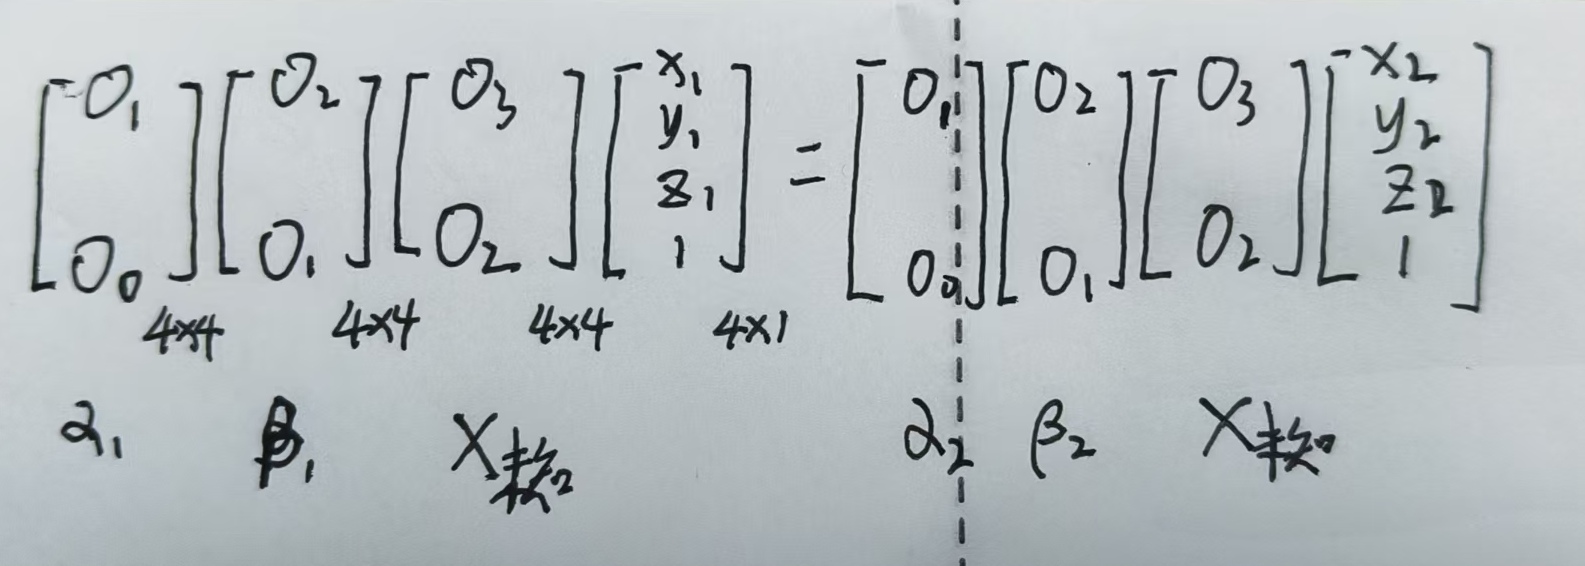 [O₁ O₀] [O₂ O₁] [O₃ O₂] [x₁ y₁ z₁ 1] = [O₁ O₀] [O₂ O₁] [O₃ O₂] [x₂ y₂ z₂ 1]
4×4 4×4 4×4 4×1
α₁ β₁ X α₂ β₂ X